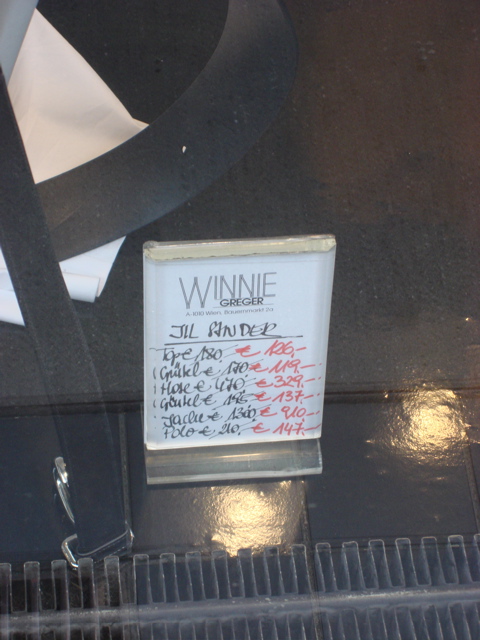 WINNIE
GREGER
A-1010 Wien, Bauernmarkt 2a
JIL SANDER
Top € 180,- € 126,-
Gürtel € 170,- € 119,-
Hose € 470,- € 329,-
Gürtel € 196,- € 137,-
Jacke € 1300,- € 910,-
Polo € 210,- € 147,-